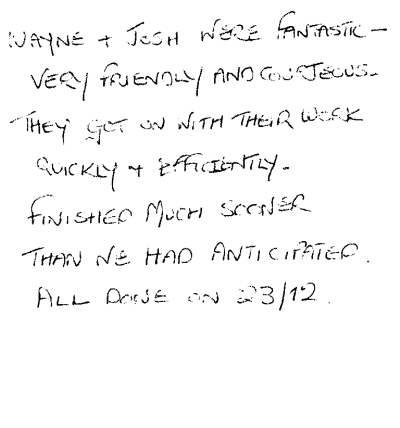 WAYNE + JOSH WERE FANTASTIC -
VERY FRIENDLY AND COURTEOUS.
THEY GOT ON WITH THEIR WORK
QUICKLY + EFFICIENTLY.
FINISHED MUCH SOONER
THAN WE HAD ANTICIPATED.
ALL DONE ON 23/12.